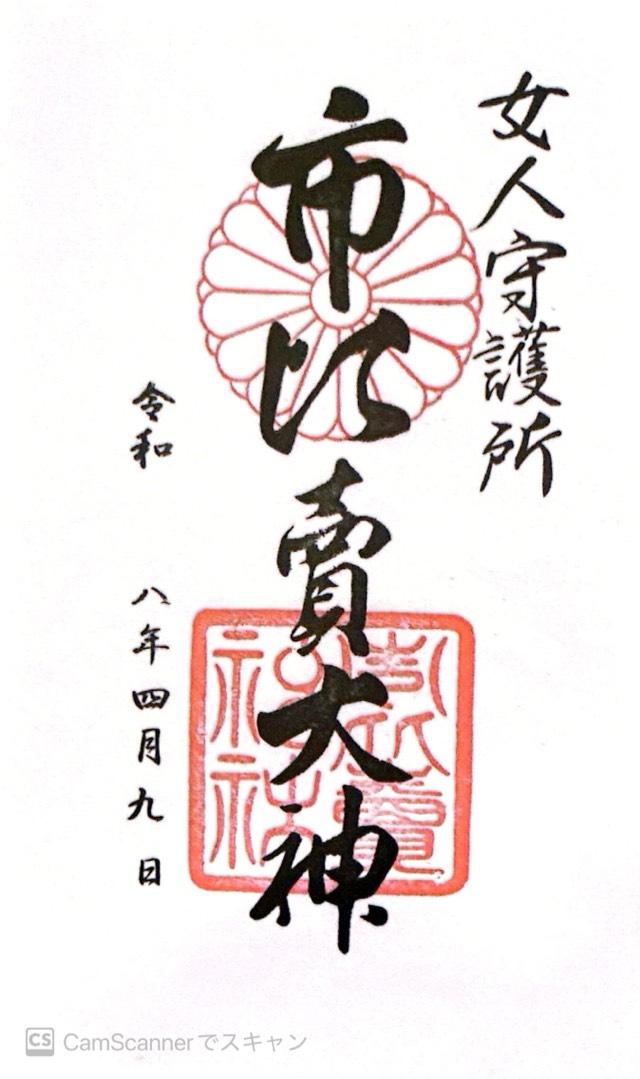 女人守護所
市比賣大神
令和 八年四月九日
市比賣神社
CS CamScannerでスキャン